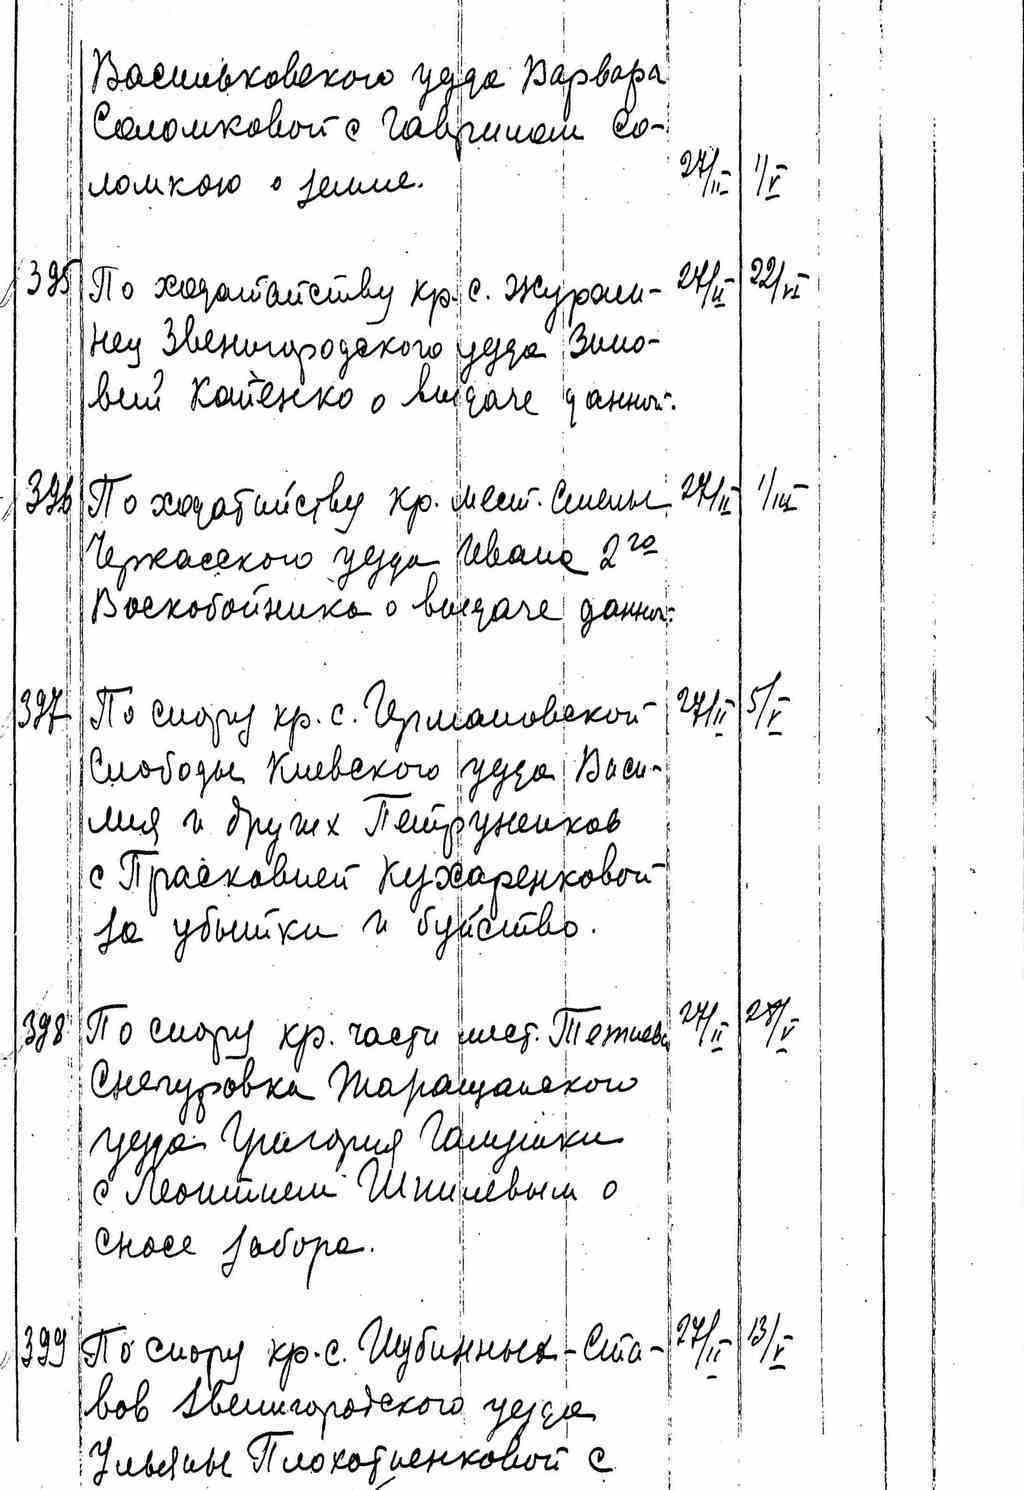 Васильковского уезда Варвары
Саломковой с Гавриилом Со-
ломкою о земле. 27/II 1/V
395 По ходатайству кр. с. Журжин-
нец Звенигородского уезда Зино-
вий Катенко о выдаче данной. 27/II 22/VI
396 По ходатайству кр. мест. Смелы 27/II 1/III
Черкасского уезда Ивана 2го
Воскобойника о выдаче данной.
397 По спору кр. с. Германовской 27/II 5/V
Слободы Киевского уезда Васи-
лия и других Петруненков
с Прасковией Кухаренковой
за убытки и буйство.
398 По спору кр. части мест. Тетиева 27/II 28/V
Снегуровка Таращанского
уезда Григория Галушки
с Леонтием Шпилевым о
сносе забора.
399 По спору кр. с. Шубинных-Ста- 27/II 13/V
вов Звенигородского уезда
Ульяны Плохотненковой с